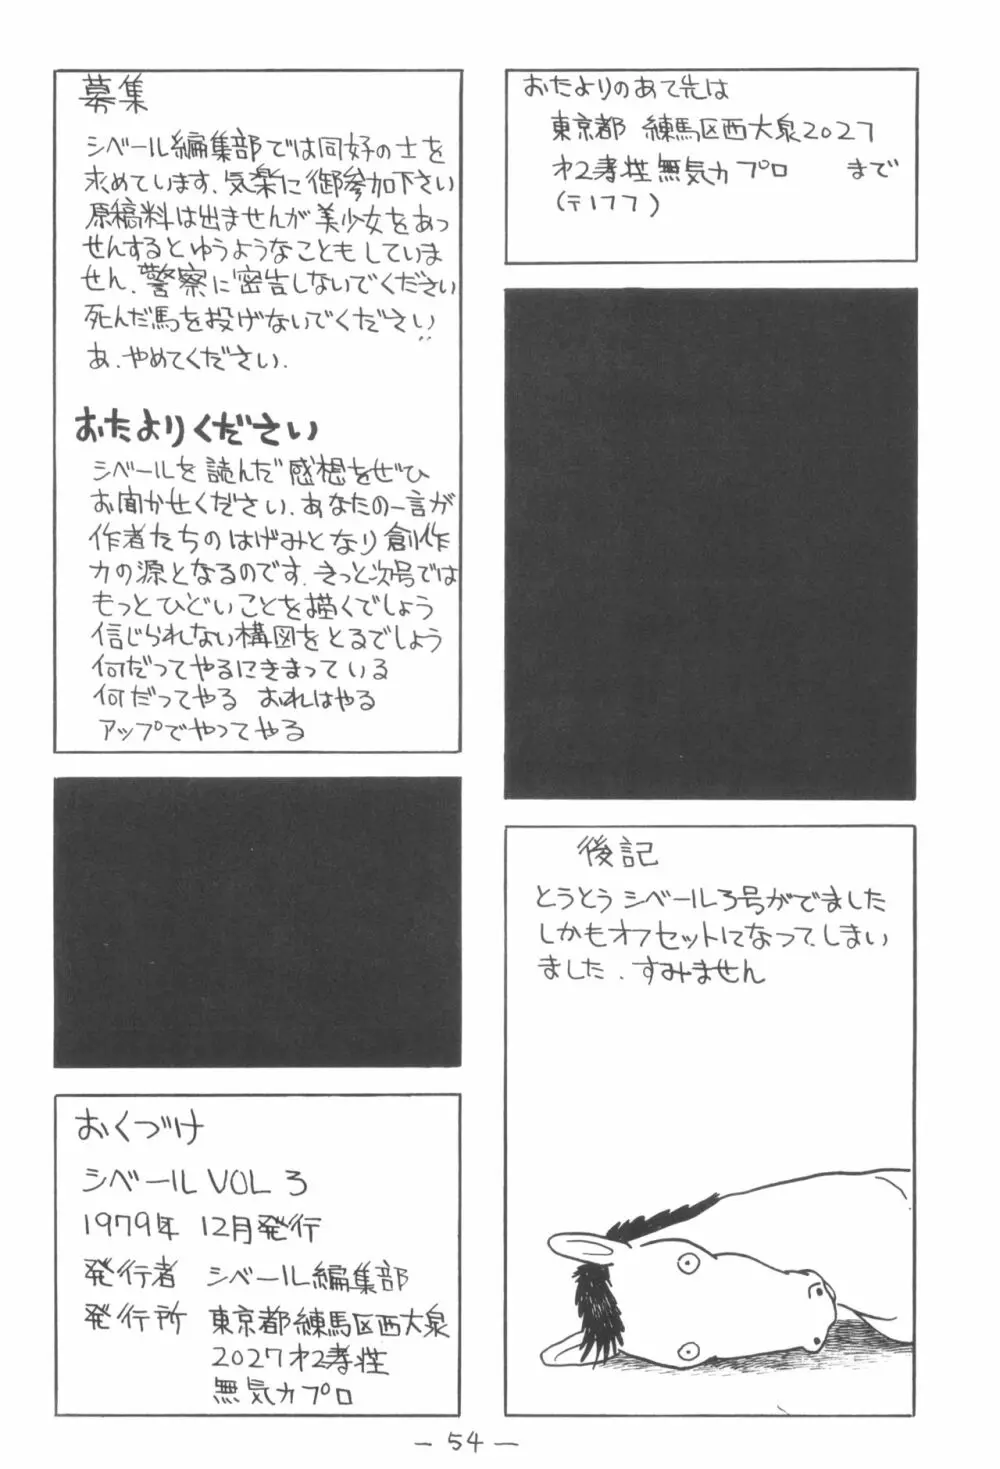 募集
シベール編集部では同好の士を
求めています、気楽に御参加下さい
原稿料は出ませんが美少女をあっ
せんするとゆうようなこともしていま
せん、警察に密告しないでください
死んだ馬を投げないでください
あ、やめてください.
おたよりください
シベールを読んだ感想をぜひ
お聞かせください、あなたの一言が
作者たちのはげみとなり創作
力の源となるのです、きっと次号では
もっとひどいことを描くでしょう
信じられない構図をとるでしょう
何だってやるにきまっている
何だってやる おれはやる
アップでやってやる
おくづけ
シベール VOL 3
1979年 12月発行
発行者 シベール編集部
発行所 東京都練馬区西大泉
2027才2孝性
無気力プロ
おたよりのあて先は
東京都 練馬区西大泉2027
才2孝性無気力プロ まで
(〒177)
後記
とうとうシベール3号がでました
しかもオフセットになってしまい
ました.すみません
— 54 —